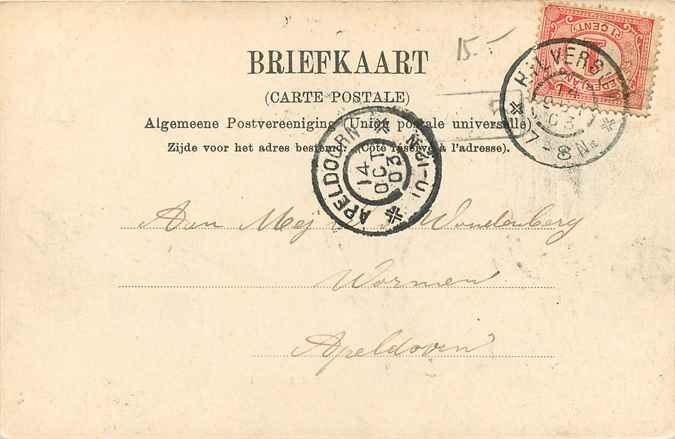 15.-
BRIEFKAART
(CARTE POSTALE)
Algemeene Postvereeniging (Union postale universelle).
Zijde voor het adres bestemd. (Côté réservé à l'adresse).
1 CENT
HILVERSUM
7-8N
APELDOORN
14
OCT
03
10-12N
Aan Mej Woudenberg
Wormen
Apeldoorn